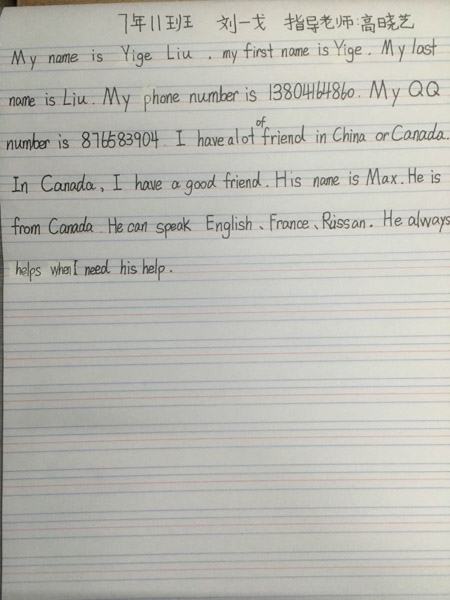 7年11班 刘一戈 指导老师:高晓艺
My name is Yige Liu . my first name is Yige. My last
name is Liu. My phone number is 13804164860. My QQ
number is 876583904. I have a lot of friend in China or Canada.
In Canada, I have a good friend. His name is Max. He is
from Canada He can speak English、France、Rüssan. He always
helps when I need his help.